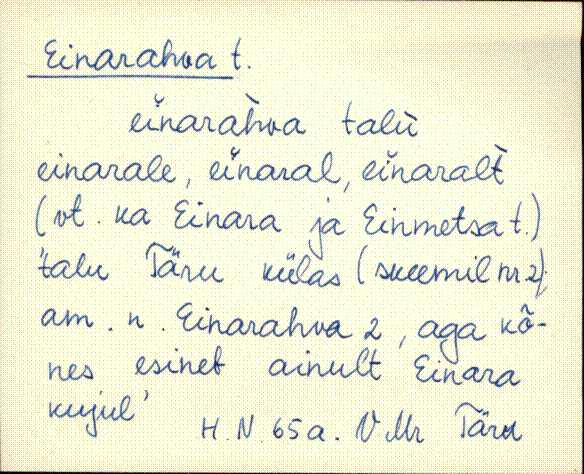 Einarahva t.
eĭnaràhva talù
einarale, eĭnaral, eĭnaralt̀
(vt. ka Einara ja Einmetsa t.)
'talu Täru külas (skeemil nr. 2);
am. n. Einarahva 2, aga kõ-
nes esineb ainult Einara
kujul'
H. N. 65 a. V Mr Täru